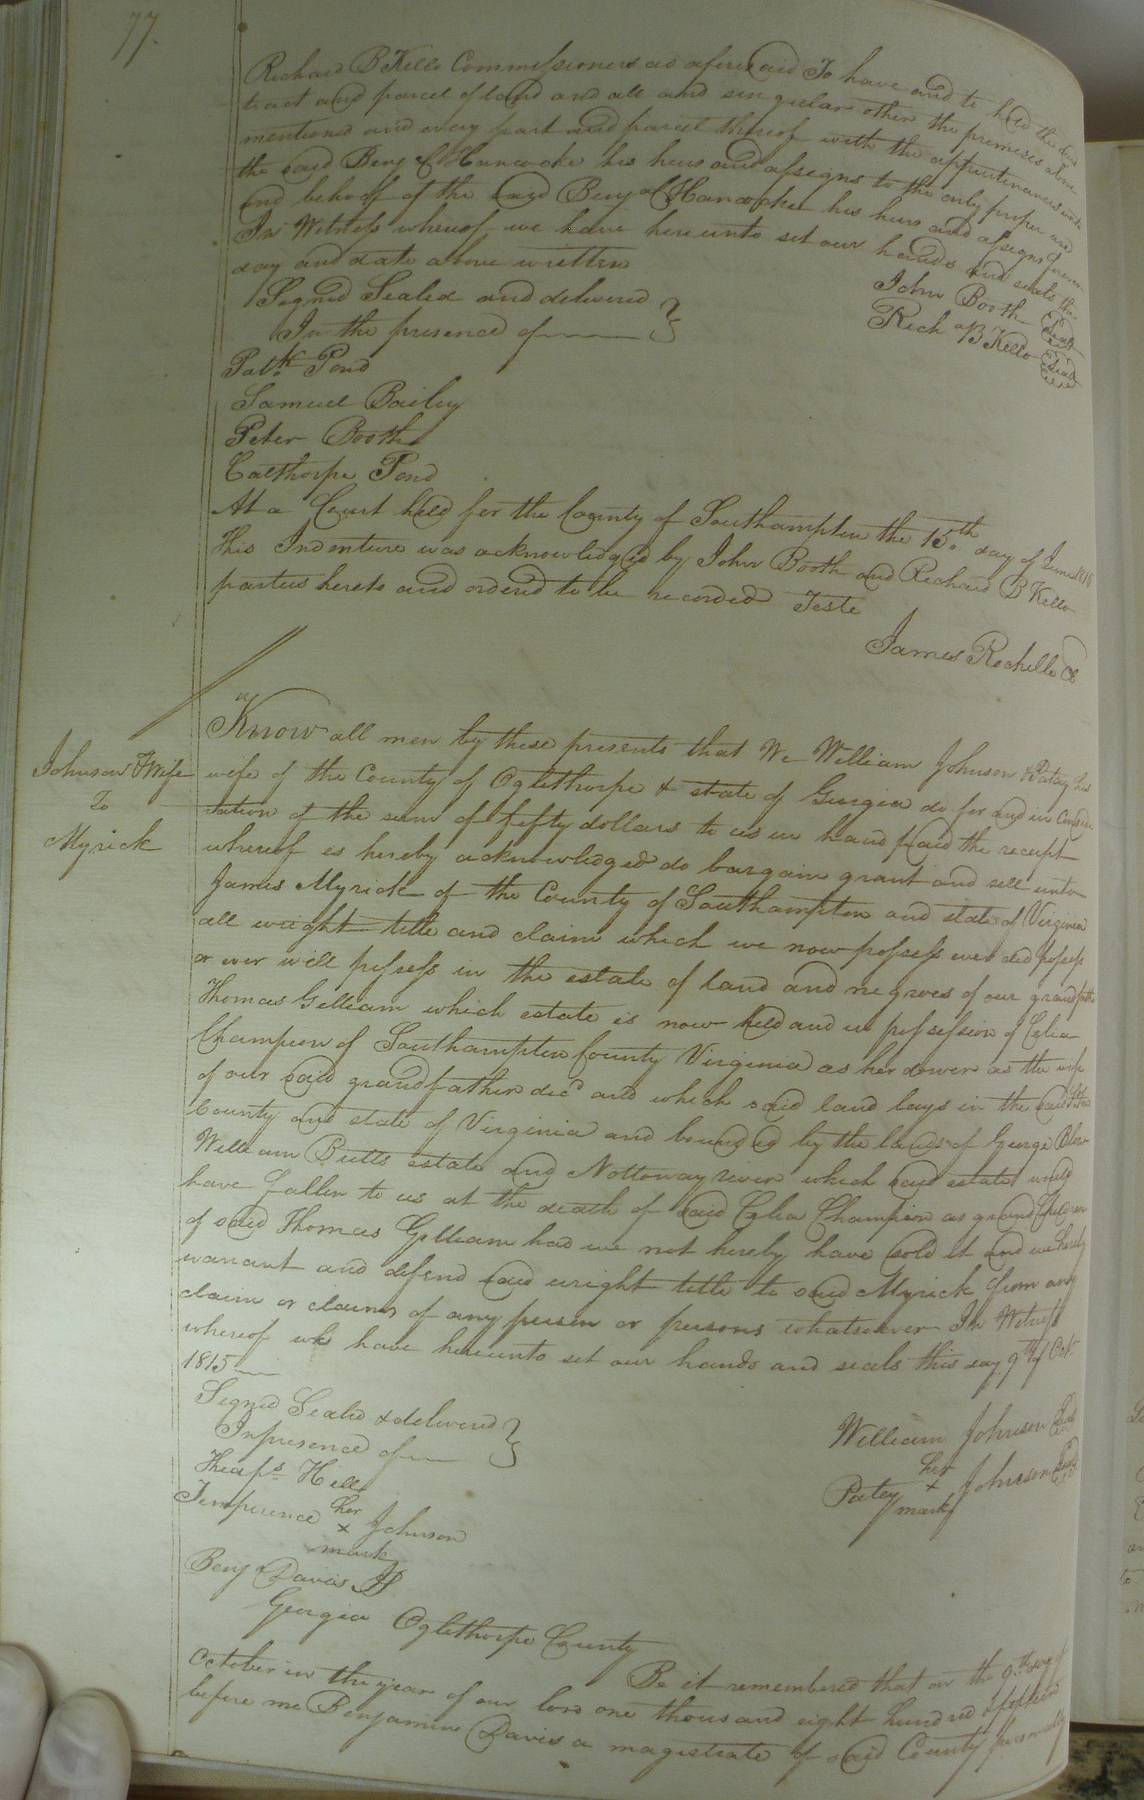 77.
Richard B Kello Commissioners as aforesaid To have and to hold the said
tract and parcel of land and all and singular other the premises above
mentioned and every part and parcel thereof with the appurtenances unto
the said Benj C Hancocke his heirs and assigns to the only proper use
and behoof of the said Benj Hancocke his heirs and assigns forever
In Witness whereof we have hereunto set our hands and seals the
day and date above written
Signed Sealed and delivered
In the presence of
John Booth Seal
Rich B Kello Seal
Patk Pond
Samuel Bailey
Peter Booth
Calthorpe Pond
At a Court held for the County of Southampton the 15th day of June 1816
This Indenture was acknowledged by John Booth and Richard B Kello
parties hereto and ordered to be recorded Teste
James Rochelle Cl
Johnson & Wife
To
Myrick
Know all men by these presents that We William Johnson & Patey his
wife of the County of Oglethorpe & state of Georgia do for and in conside
ration of the sum of fifty dollars to us in hand paid the receipt
whereof is hereby acknowledged do bargain grant and sell unto
James Myrick of the County of Southampton and state of Virginia
all wright title and claim which we now possess ever did possess
or ever will possess in the estate of land and negroes of our grandfather
Thomas Gilliam which estate is now held and in possession of Celia
Champion of Southampton County Virginia as her dower as the wife
of our said grandfather decd and which said land lays in the said
County and state of Virginia and bounded by the lands of George Blow
William Butts estate and Nottoway river which said estate would
have fallen to us at the death of said Celia Champion as grand Children
of said Thomas Gilliam had we not hereby have sold it and we hereby
warrant and defend said wright title to said Myrick from any
claim or claims of any person or persons whatsoever In Witness
whereof we have hereunto set our hands and seals this day 9th of Octr
1815
Signed Sealed & delivered
In presence of
William Johnson Seal
her
Patey x Johnson Seal
mark
Theaps Hill
her
Temperence x Johnson
mark
Benj Davis JP
Georgia Oglethorpe County
Be it remembered that on the 9th day of
October in the year of our lord one thousand eight hundred & fifteen
before me Benjamin Davis a magistrate of said County personally